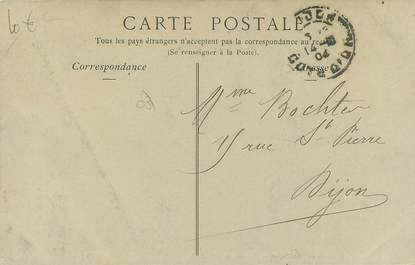 10 €
CARTE POSTALE
Tous les pays étrangers n'acceptent pas la correspondance au
(Se renseigner à la Poste).
Correspondance
03
Mme Bochter
15 rue St Pierre
Dijon